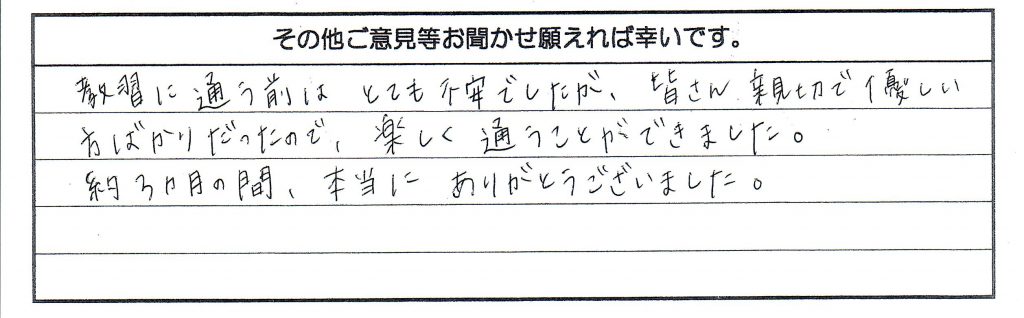 その他ご意見等お聞かせ願えれば幸いです。
教習に通う前は とても不安でしたが、皆さん親切で優しい
方ばかりだったので、楽しく通うことができました。
約3ヵ月の間、本当に ありがとうございました。